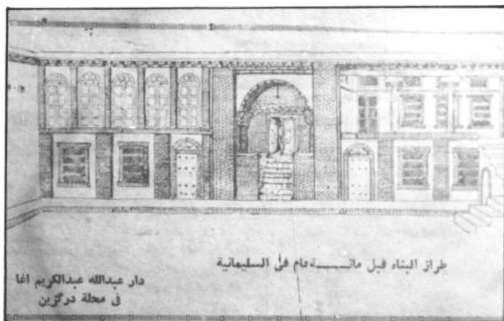 طراز البناء قبل مائـــــة عام في السليمانية
دار عبدالله عبدالكريم اغا
في محلة درگزين